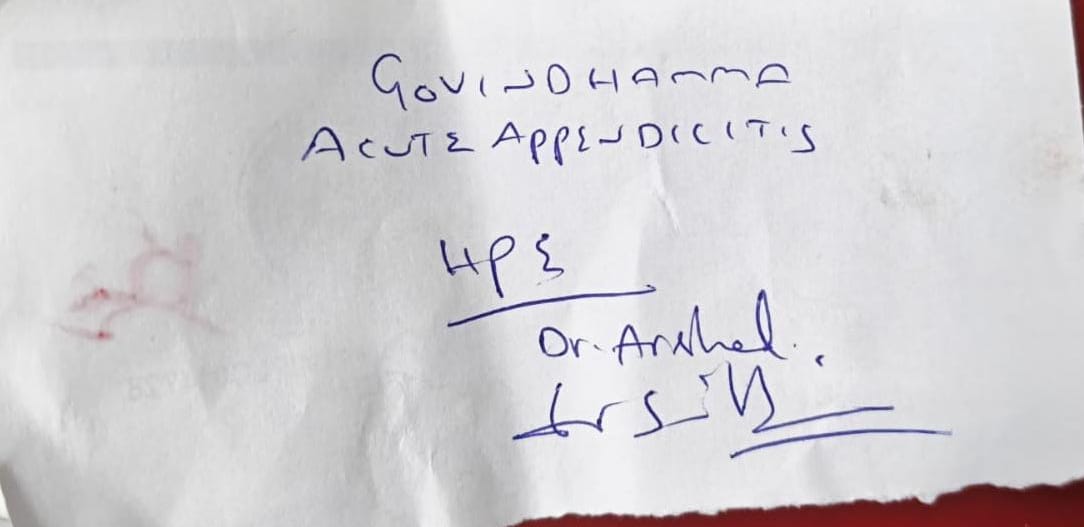 GOVINDHAMMA
ACUTE APPENDICITIS
HPE
Dr.